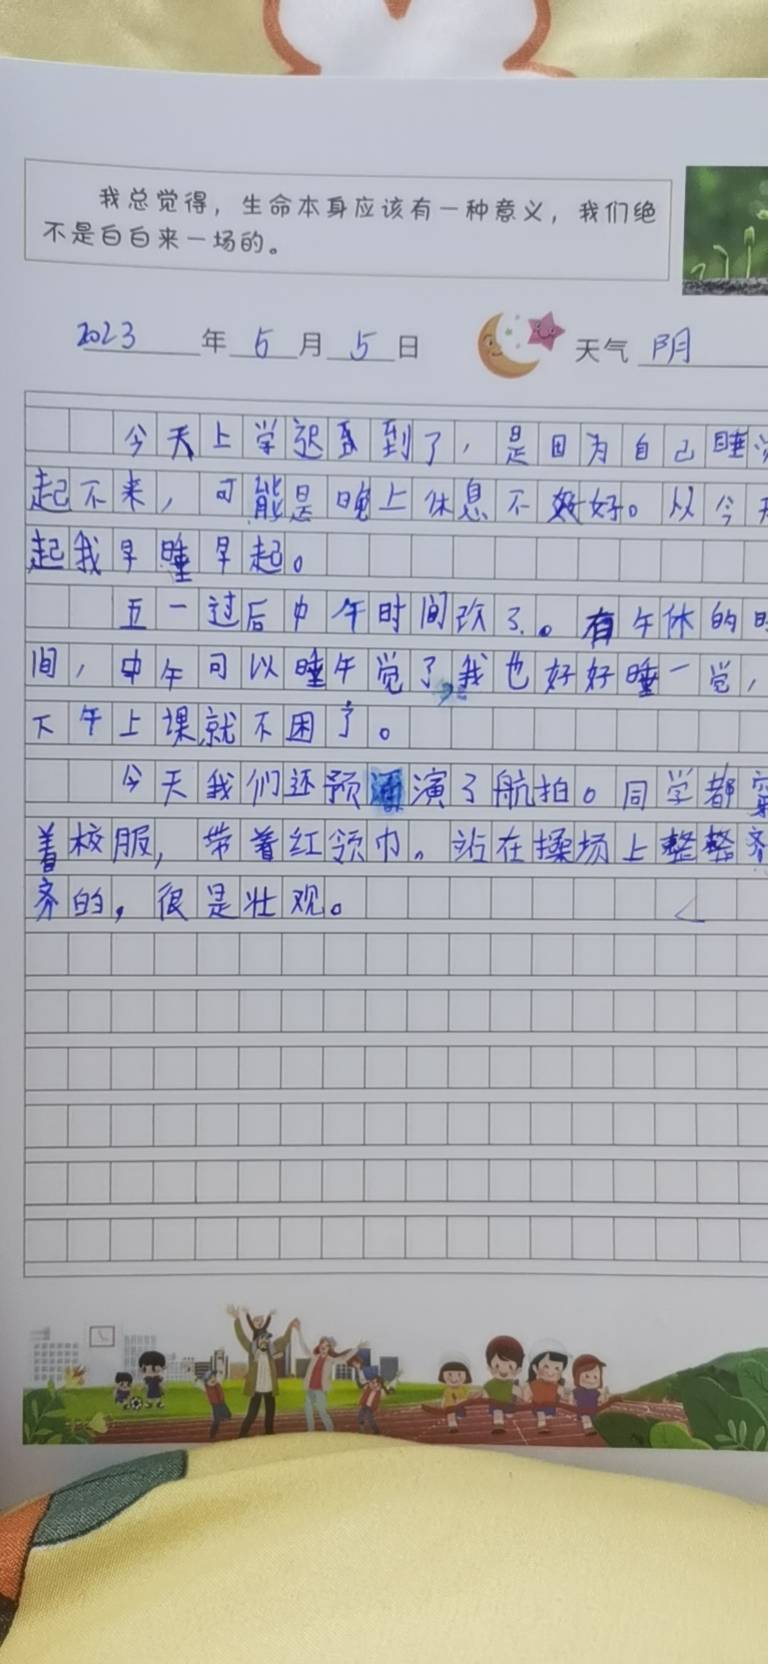 我总觉得，生命本身应该有一种意义，我们绝
不是白白来一场的。
2023年5月5日 天气 阴
今天上学迟到了，是因为自己睡
起不来，可能是晚上休息不好。从今天
起我早睡早起。
五一过后中午时间改了。有午休的时
间，中午可以睡午觉了，我也好好睡一觉，
下午上课就不困了。
今天我们还预演了航拍。同学都穿
着校服，带着红领巾。站在操场上整整齐
齐的，很是壮观。